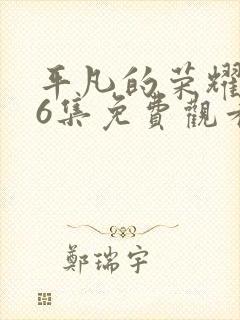 平凡的荣耀
6集免費觀看
鄭瑞宇